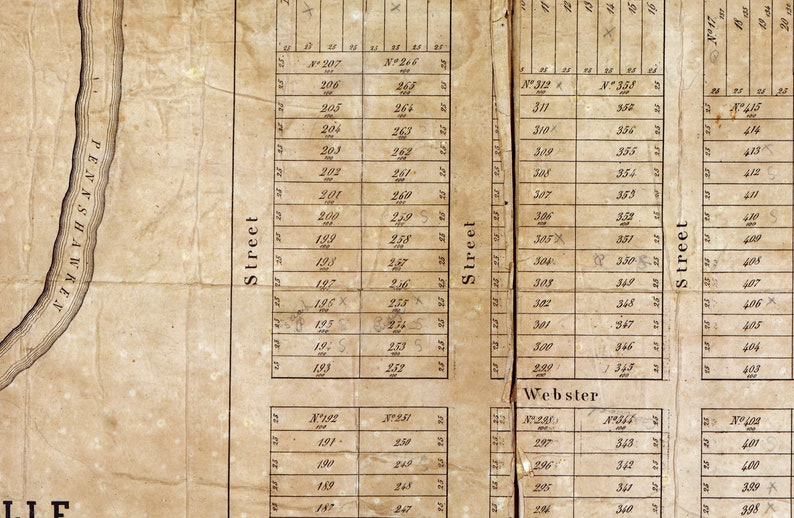 10 11 12 13 14 15 16
No 17 18 19 20
135 134 133 132
25 25 25 25 25 25 25 25
25 25 25 25 25 25 25
25 25 25 25
No 207 No 266 No 312 No 358 No 415
206 265 311 357 414
205 264 310 356 413
204 263 309 355 412
203 262 308 354 411
202 261 307 353 410
201 260 306 352 409
200 259 305 351 408
199 258 304 350 407
198 257 303 349 406
197 256 302 348 405
196 255 301 347 404
195 254 300 346 403
194 253 299 345
193 252
PENNSHAWKEN
Street
Street
Street
Webster
No 192 No 251 No 298 No 344 No 402
191 250 297 343 401
190 249 296 342 400
189 248 295 341 399
187 247 294 340 398
LLE